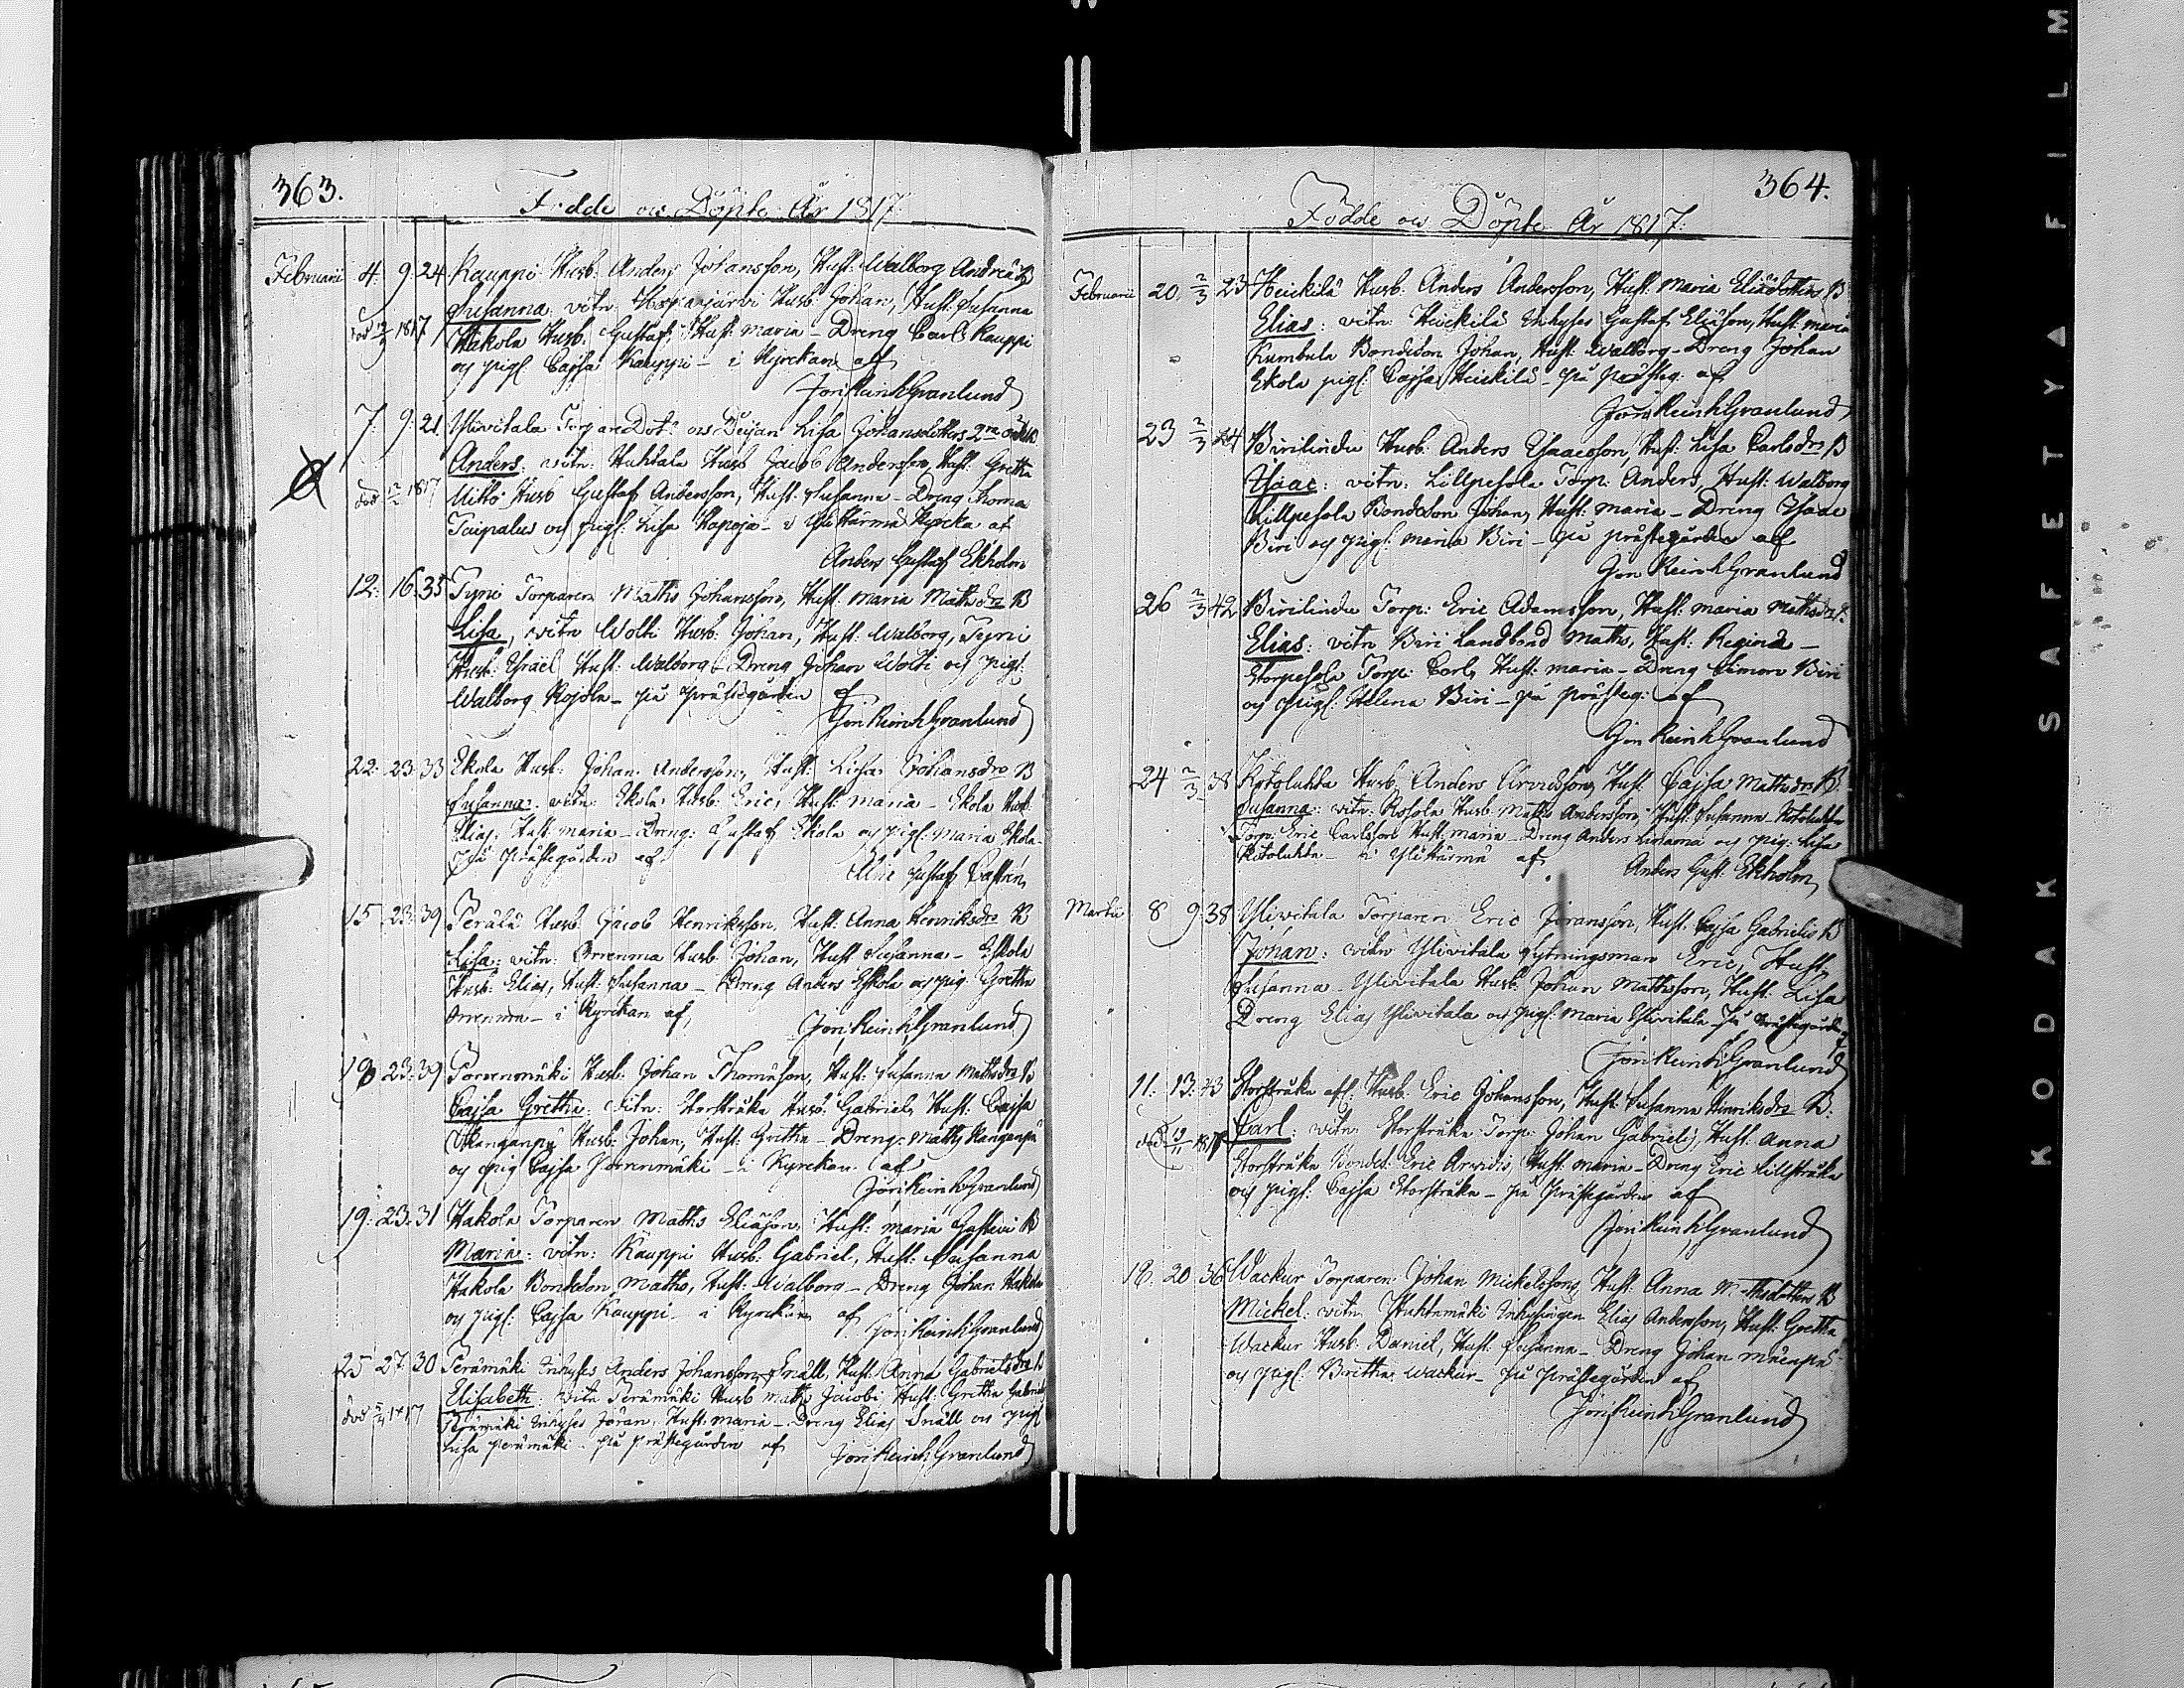 363.
Födde och Döpte År 1817.
Februarii 4. 9. 24 Kauppi Husb: Anders Johansson, Hust: Walborg Andersdr B
Susanna: vitn: Husb: Johan, Hust: Susanna
död 1817 Hakola Husb: Gustaf, Hust: Maria - Dreng Carl Kauppi
och pig: Cajsa Kauppi - i Kyrckan af
Jöri Reinh Granlund
7. 9. 21. Yliwitala Torpar Dot: Lisa Johansdotters
Anders: vitn: Huhtala Husb Jacob Andersson, Hust: Gretha
död 1817 Husb Gustaf Andersson, Hust: Susanna - Dreng Thomas
Taipalus och pig: Lisa Hapoja - i Ylihärmä Kyrcka af
Anders Gustaf Ekholm
12. 16. 35 Tyni Torparen Matts Johansson, Hust: Maria Mattsdr B
Lisa, vitn Wolti Husb: Johan, Hust: Walborg, Tyni
Husb: Israel Hust: Walborg - Dreng Johan Wolti och pig:
Walborg Rojola - på prästegården af
Jöri Reinh Granlund
22. 23. 33 Ekola Husb: Johan Andersson, Hust: Lisa Johansdr B
Susanna: vitn: Ekola Husb: Eric, Hust: Maria - Ekola Husb:
Elias, Hust: Maria - Dreng: Gustaf Ekola och pig: Maria Ekola
På prästegården af
Gustaf Castrén
15. 23. 39 Perälä Husb: Jacob Henriksson, Hust: Anna Henriksdr B
Lisa: vitn: Orrenmaa Husb: Johan, Hust Susanna - Eskola
Husb: Elias, Hust: Susanna - Dreng Anders Eskola och pig: Gretha
Orrenmaa - i Kyrckan af
Jöri Reinh Granlund
19. 23. 39 Porrenmäki Husb: Johan Thomasson, Hust: Susanna Mattsdr B
Cajsa Gretha: vitn: Storstråka Husb: Gabriel, Hust: Cajsa
Kanganpä Husb: Johan, Hust: Gretha - Dreng: Matts Kangenpä
och pig Cajsa Porrenmäki - i Kyrckan af
Jöri Reinh Granlund
19. 23. 31 Hakola Torparen Matts Eliasson, Hust: Maria Gustavi B
Maria: vitn: Kauppi Husb: Gabriel, Hust: Susanna
Hakola Bondeson Matts, Hust: Walborg - Dreng Johan Hakola
och pig: Cajsa Kauppi - i Kyrckan af
Jöri Reinh Granlund
25 27. 30 Perämäki Inhyses Anders Johansson Snäll, Hust: Anna Gabrielsdr B
Elisabeth: vitn Perämäki Husb Matts Jacobi Hust: Gretha Gabriels
död 1817 Perämäki Inhyses Jöran, Hust: Maria - Dreng Elias Snäll och pig:
Lisa Perämäki - på prästegården af Jöri Reinh Granlund
364.
Födde och Döpte År 1817.
Februarii 20. 2/3 23 Heickilä Husb: Anders Andersson, Hust: Maria Eliädotters B
Elias: vitn: Heickilä Inhyses Gustaf Eliäson, Hust: Maria
Kumbula Bondeson Johan, Hust: Walborg - Dreng Johan
Ekola pig: Cajsa Heickilä - på prästeg: af
Jöri Reinh Granlund
23 2/3 24 Birilinder Husb: Anders Isaacsson, Hust: Lisa Carlsdr B
Isaac: vitn: Lillpesola Torp: Anders, Hust: Walborg
Lillpesola Bondeson Johan, Hust: Maria - Dreng Isaac
Biri och pig: Maria Biri - på prästegården af
Jöri Reinh Granlund
26 2/3 42 Birilinder Torp: Eric Adamsson, Hust: Maria Mattsdr B.
Elias: vitn Biri Landbond Matts, Hust: Regina -
Storpesola Torp: Carl, Hust: Maria - Dreng Simon Biri
och pig: Helena Biri - på prästeg: af
Jöri Reinh Granlund
24 2/3 38 Kotolukka Husb: Anders Arvidsson, Hust: Cajsa Mattsdr B.
Susanna: vitn: Pesola Husb: Matts Andersson, Hust: Susanna Kotolukka
Torp: Eric Carlsson Hust: Maria - Dreng Anders och pig: Lisa
Kotolukka - i Ylihärmä af
Anders Gust: Ekholm
Martii 8 9. 38 Yliwitala Torparen Eric Jöransson, Hust: Cajsa Gabrielis B
Johan: vitn Yliwitala Eric, Hust:
Susanna - Yliwitala Husb: Johan Mattsson, Hust: Lisa
Dreng Elias Yliwitala och pig: Maria Yliwitala på prästegården
Jöri Reinh Granlund
11. 13. 43 Storstråka Husb: Eric Johansson, Hust: Susanna Henriksdr B.
död 1817 Carl: vitn: Storstråka Torp: Johan Gabrielis, Hust: Anna
Storstråka Bondes: Eric Arvidis, Hust: Maria - Dreng Eric Lillstråka
och pig: Cajsa Storstråka - på prästegården af
Jöri Reinh Granlund
18. 20. 36 Wackur Torparen Johan Mickelsson, Hust: Anna Mattsdotters B
Mickel: vitn Huhtamäki Inhysingen Elias Andersson, Hust: Gretha
Wackur Husb: Daniel, Hust: Susanna - Dreng Johan Mäenpä
och pig: Bretha Wackur - på prästegården af
Jöri Reinh Granlund
KODAK SAFETY A FILM